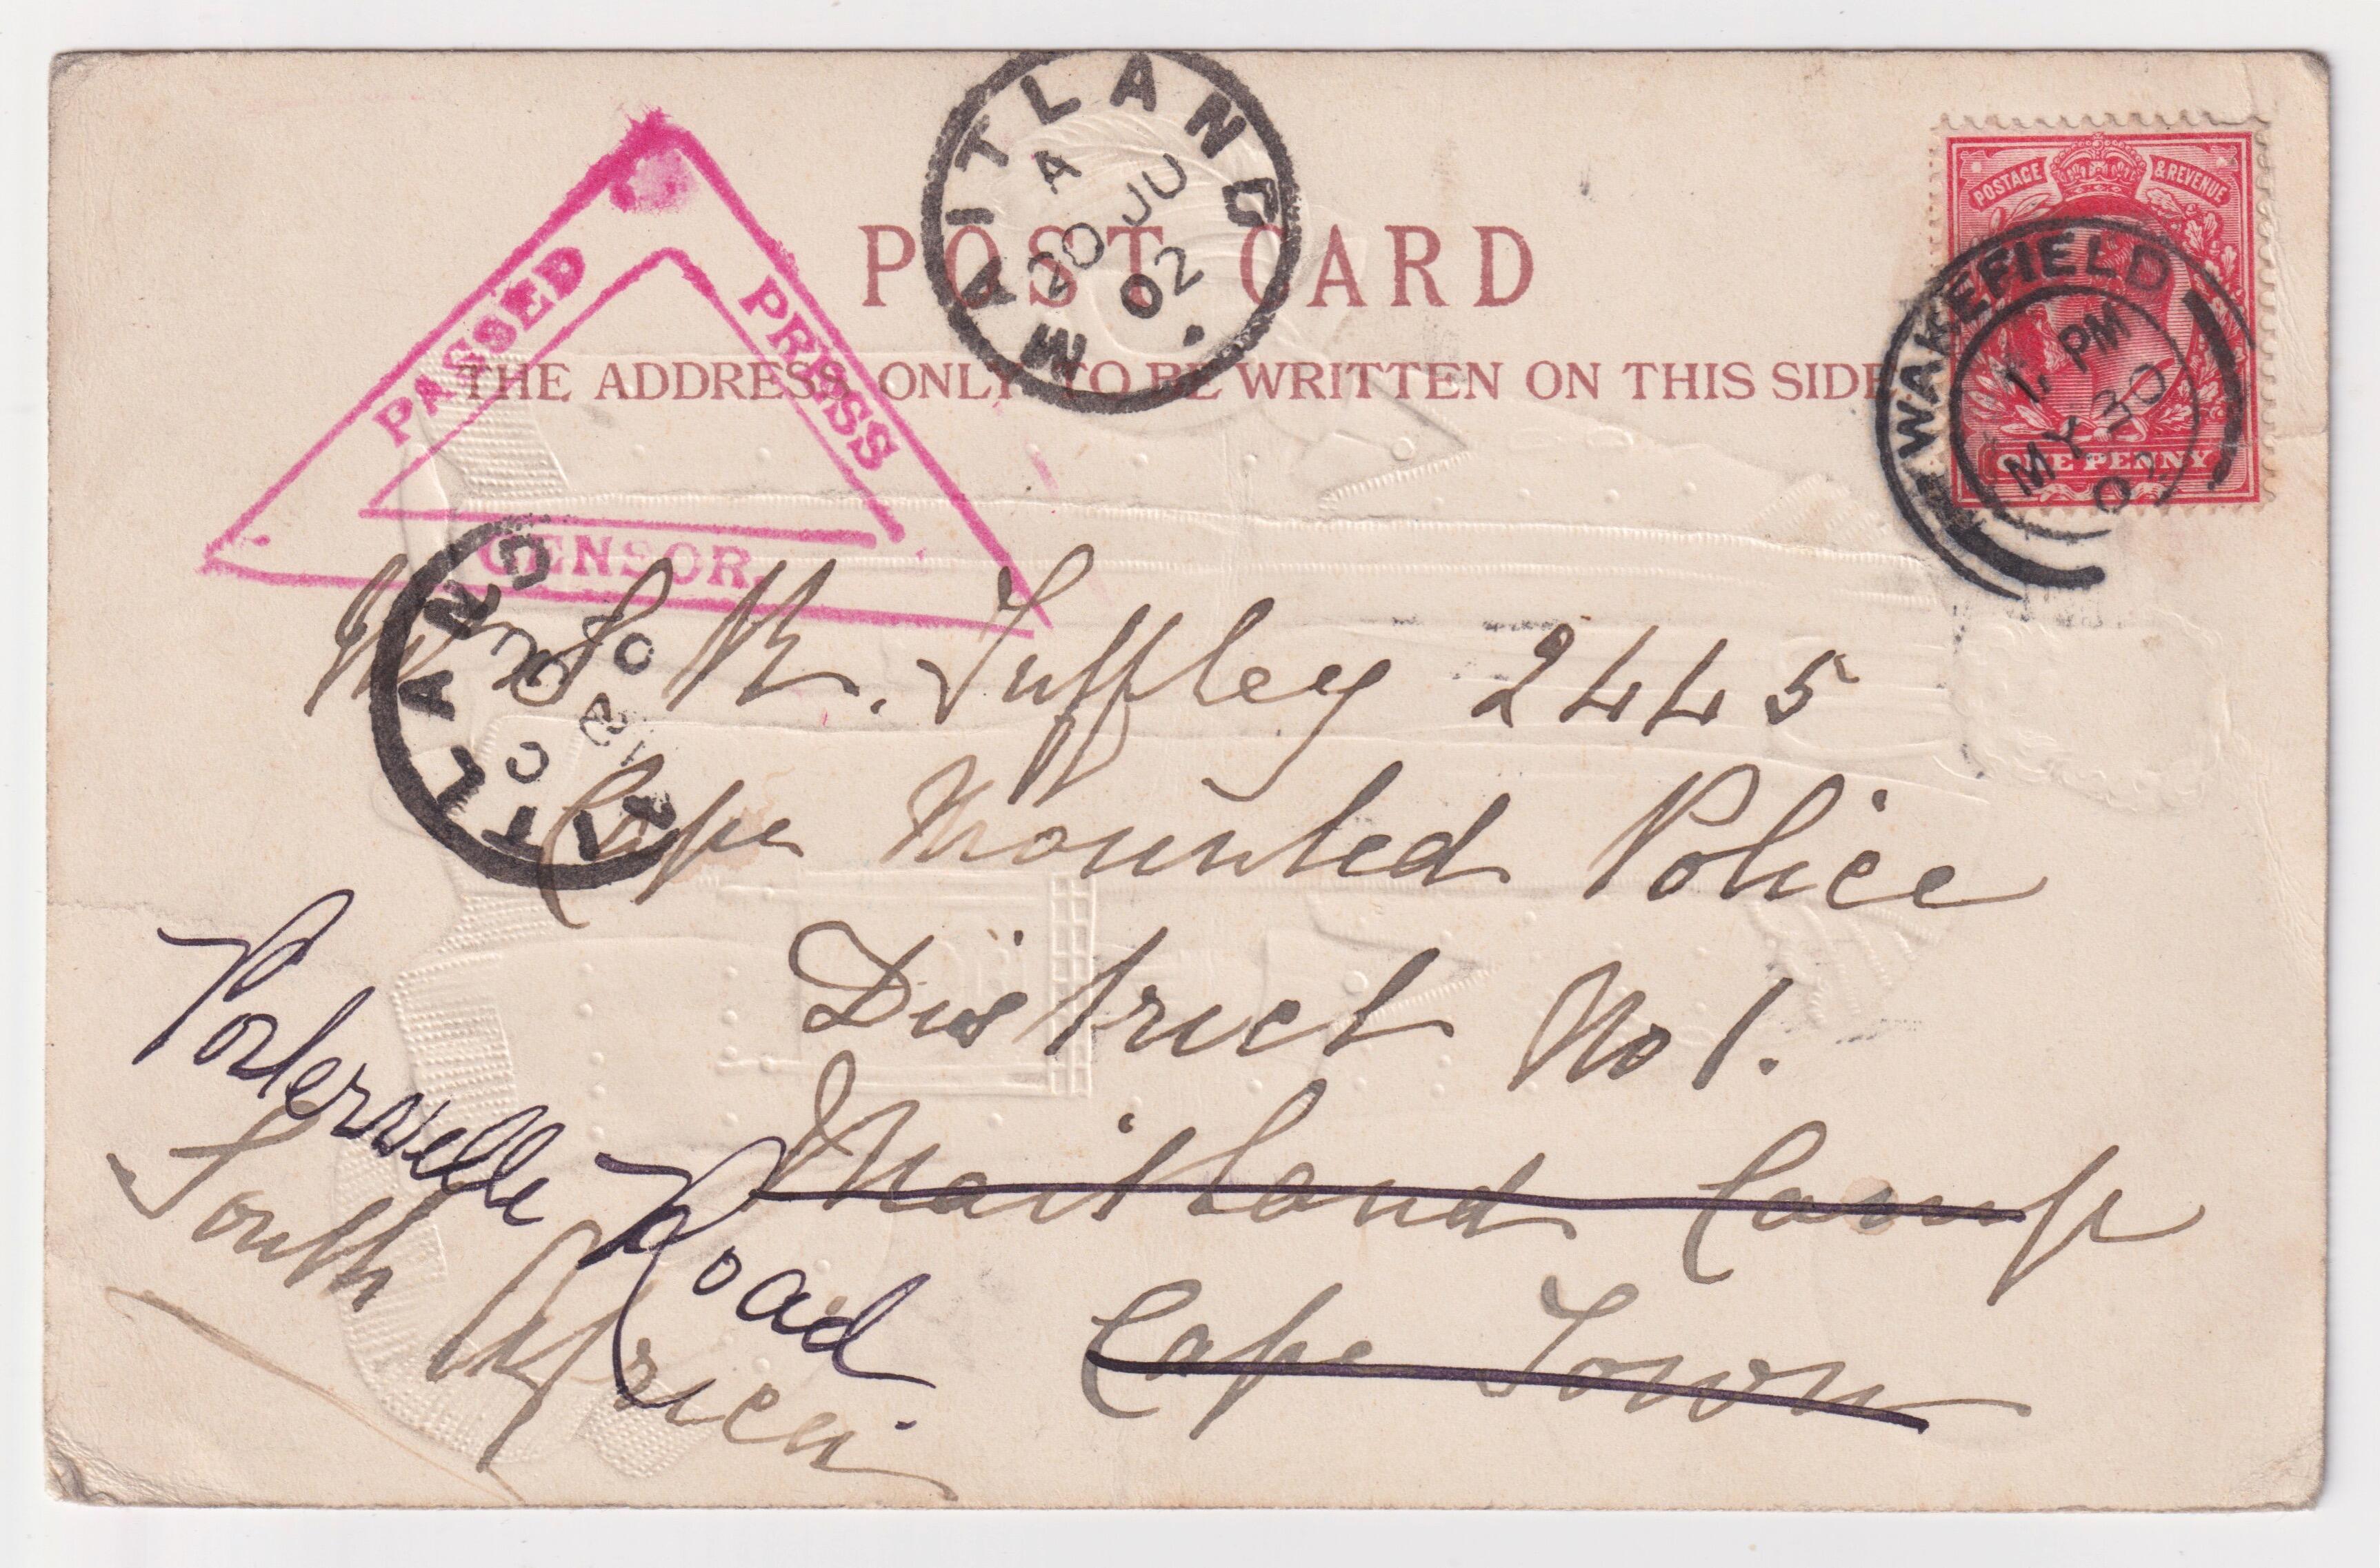 PASSED
PRESS
CENSOR.
MAITLAND
A
20 JU
02
POST CARD
THE ADDRESS ONLY TO BE WRITTEN ON THIS SIDE
POSTAGE & REVENUE
ONE PENNY
WAKEFIELD
1. PM
MY 30
02
Tuffley 2445
AITLAND
Cape Mounted Police
District No 1.
Maitland Camp
Cape Town
Porterville Road
South Africa